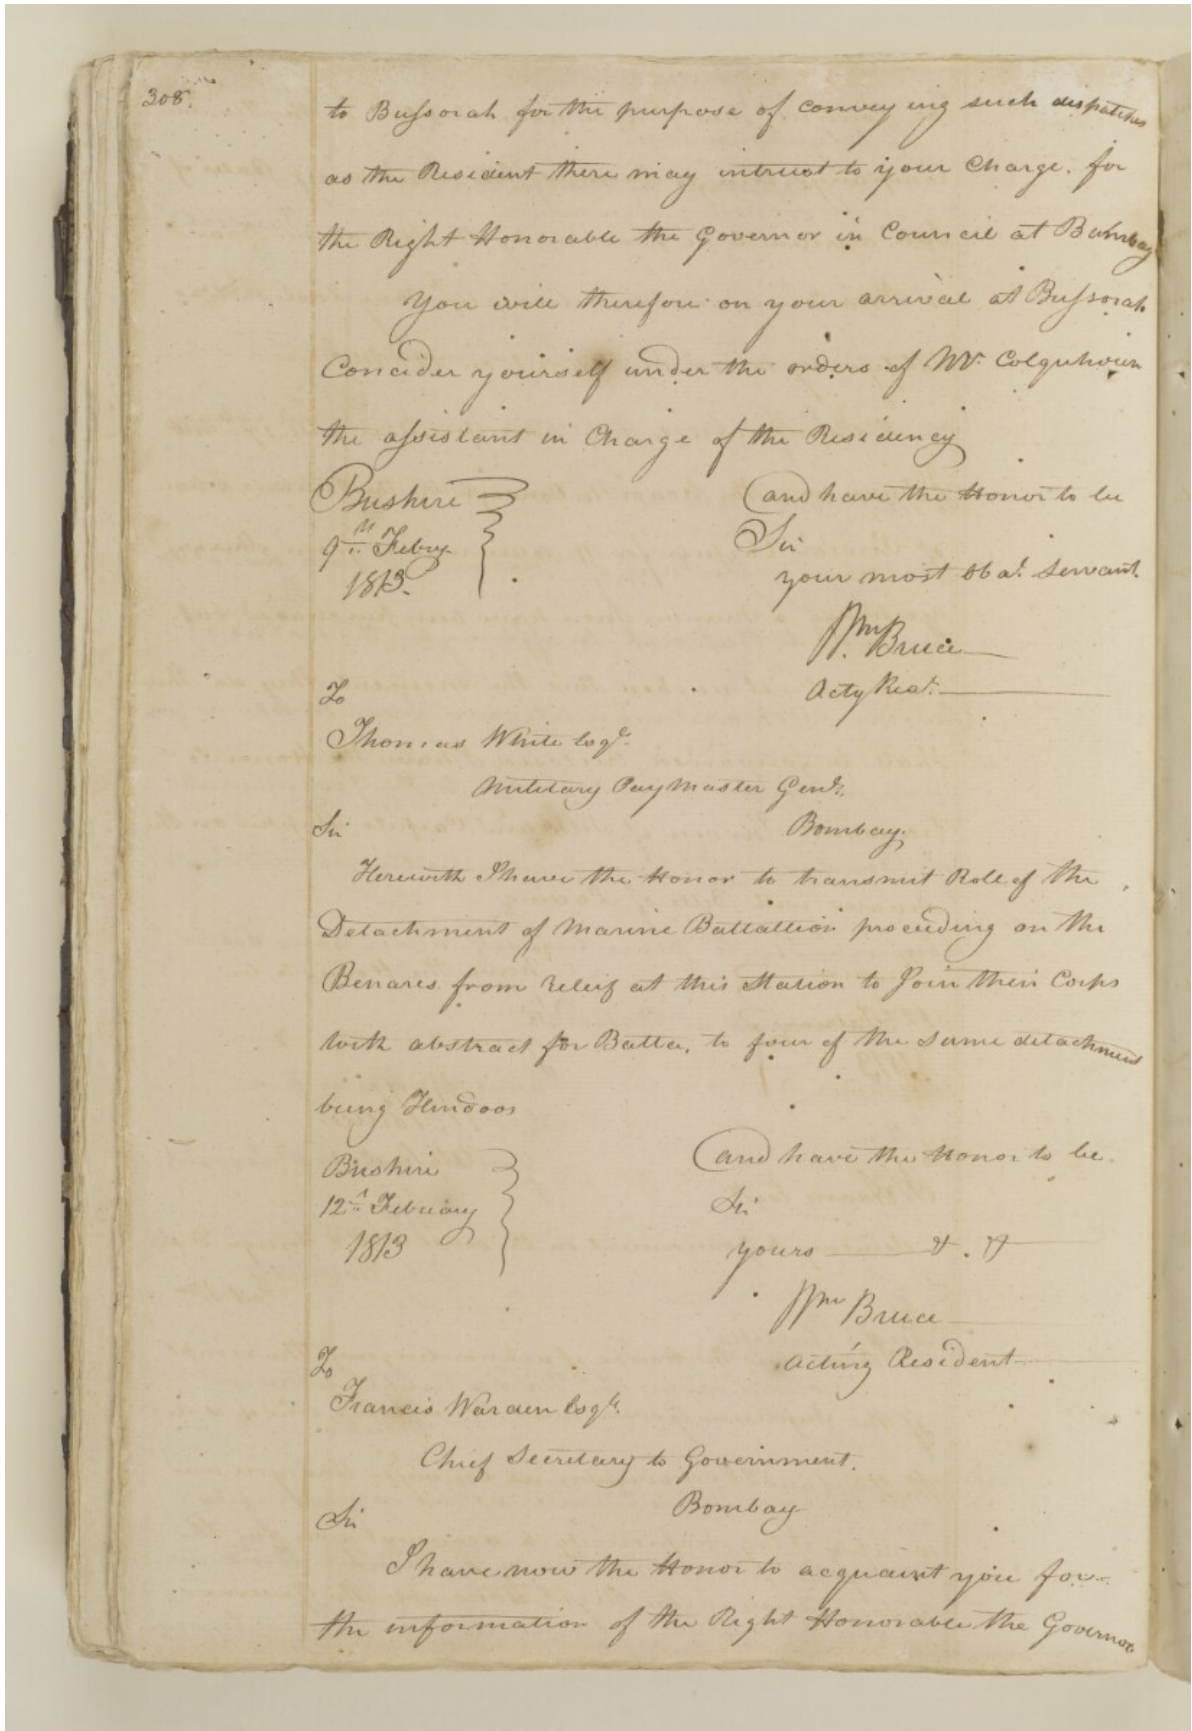 308.
to Bussorah for the purpose of conveying such dispatches
as the Resident there may intrust to your Charge. for
the Right Honorable the Governor in Council at Bombay
You will therefore on your arrival at Bussorah
Concider yourself under the orders of Mr. Colquhoun
the assistant in Charge of the Residency
Bushire
9th Febry.
1813.
and have the Honor to be
Sir
your most Obdt. Servant
Wm. Bruce
Actg Resdt.
To
Thomas White Esqr.
Military Pay Master Genl.
Bombay.
Sir
Herewith I have the Honor to transmit Roll of the
Detachment of Marine Battallion proceeding on the
Benares from releif at this Station to Join their Corps
with abstract for Batta. to four of the same detachment
being Hindoos
Bushire
12th February
1813
and have the Honor to be
Sir
yours & . &
Wm Bruce
Acting Resident
To
Francis Warden Esqr.
Chief Secretary to Government.
Bombay
Sir
I have now the Honor to acquaint you for
the information of the Right Honorable the Governor